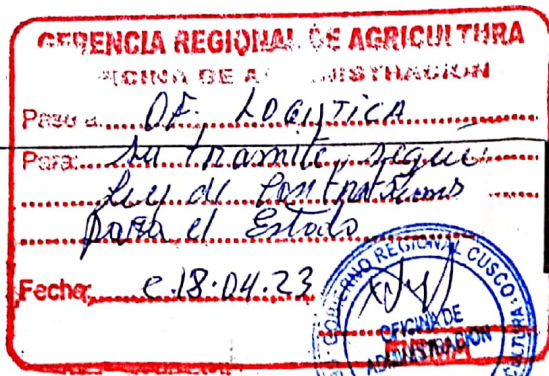 GERENCIA REGIONAL DE AGRICULTURA
OFICINA DE ADMINISTRACION
Pase a: OF. LOGISTICA
Para: Su tramite, segun
Ley de Contrataciones
para el Estado
Fecha: C. 18.04.23
GOBIERNO REGIONAL CUSCO
OFICINA DE
ADMINISTRACION